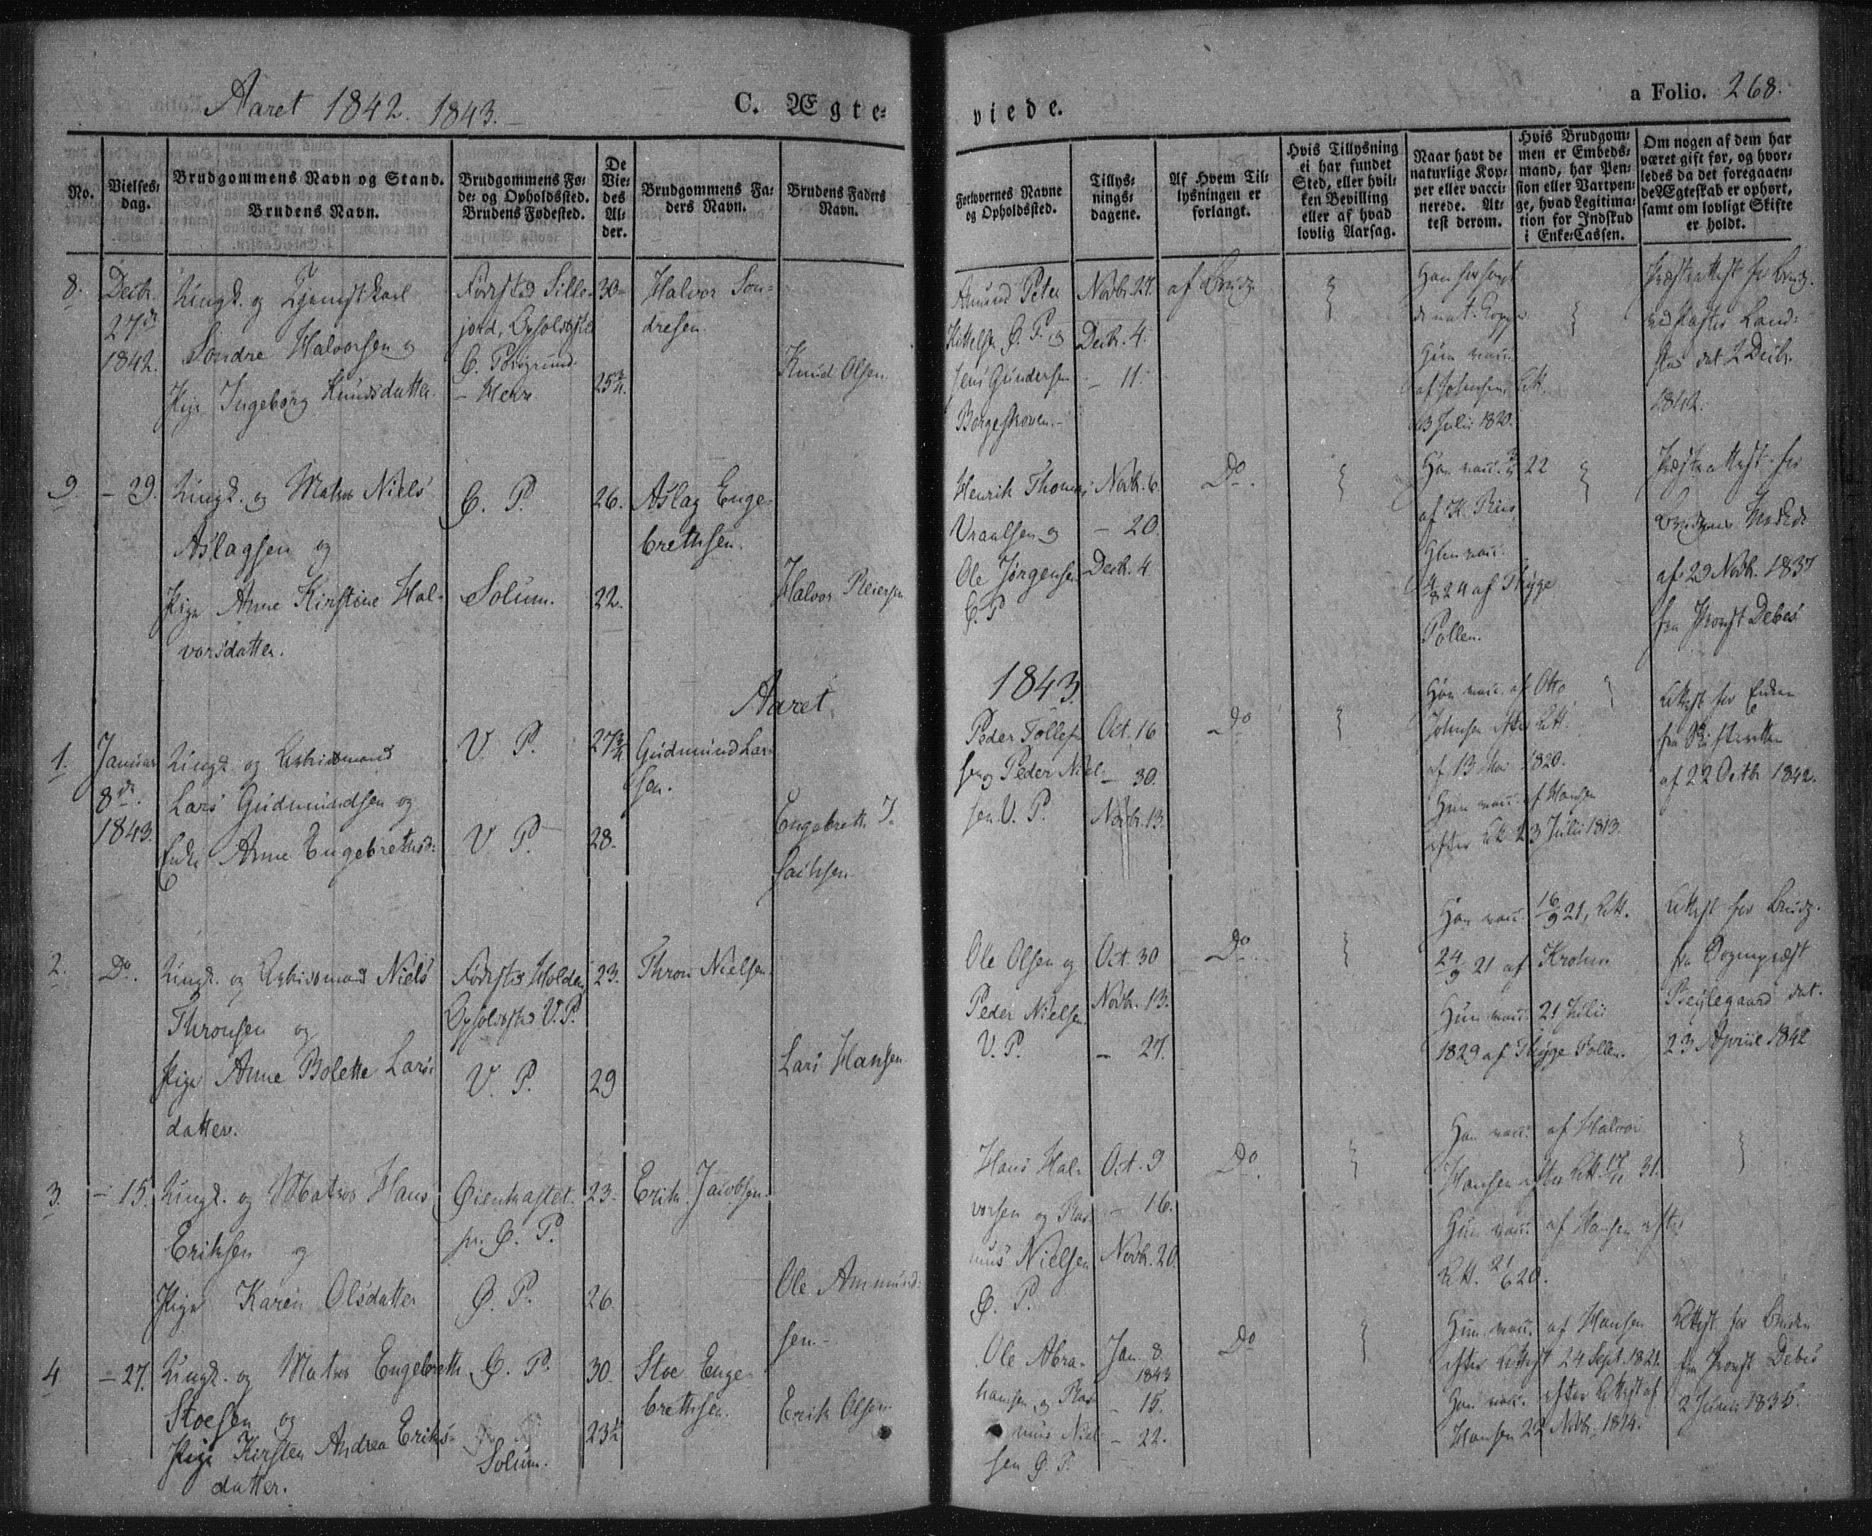 Aaret 1842. 1843.
C. Ægte-
viede.
a Folio. 268.
No.
Vielses-
dag.
Brudgommens Navn og Stand.
Brudens Navn.
Brudgommens Fø-
de- og Opholdssted.
Brudens Fødested.
De
Vie-
des
Al-
der.
Brudgommens Fa-
ders Navn.
Brudens Faders
Navn.
Forlovernes Navne
og Opholdssted.
Tillys-
nings-
dagene.
Af Hvem Til-
lysningen er
forlangt.
Hvis Tillysning
ei har fundet
Sted, eller hvil-
ken Bevilling
eller af hvad
lovlig Aarsag.
Naar havt de
naturlige Kop-
per eller vacci-
nerede. At-
test derom.
Hvis Brudgom-
men er Embeds-
mand, har Pen-
sion eller Vartpen-
ge, hvad Legitima-
tion for Indskud
i Enke-Cassen.
Om nogen af dem har
været gift før, og hvor-
ledes da det foregaaen-
de Ægteskab er ophørt,
samt om lovligt Skifte
er holdt.
8.
Decbr.
27de
1842.
Ungk. og Tjenestkarl
Sondre Halvorsen og
Pige Ingeborg Knudsdatter
Fødested Sille-
jord, Opholdsste
Ø. Porsgrund
- Herre
30-
25 3/4.
Halvor Son-
dresen
Knud Olsen
Amund Peter
Kittelsen Ø. P. og
Jens Gundersen
Borgeskoven.-
Novbr. 27.
Decbr. 4.
- 11.
af Brudg.
de nat. Kopper
Hun vacc.
af Johnsen Att.
13 Julii 1820.
Præsteattest for Brudg.
stad det 2 Decbr.
1842.
9.
- 29.
Ungk. og Matros Niels
Aslagsen og
Pige Anne Kirstine Hal-
vorsdatter.
Ø. P.
Solum.
26.
22.
Aslag Enge-
brethsen.
Halvor Reiersen
Henrik Thomas
Vraalsen og
Ole Jørgensen
Ø. P
Novbr. 6.
- 20.
Decbr. 4
Do.
Han vacc. 22
af K.
Hun vacc.
824 af Thyge
Pollen.
Præsteattest for
af 29 Novbr. 1837
fra Provst Debes
Aaret
1843.
1.
Januar
8de.
1843.
Ungk. og Arbeidsmand
Lars Gudmundsen og
Enke Anne Engebrethsd:
V. P.
V. P.
27 3/4
28.
Gudmund Lar-
sen.
Engebreth I-
saichsen.
Peder Tollef-
sen og Peder Niel-
sen V. P.
Oct. 16
- 30.
Novbr. 13.
- Do
Han vacc. af Otto
Johnsen efter Att.
af 13 Mai 1820.
Hun vacc. af Hansen
efter Att. 23 Julii 1813.
Attest for Enken
fra Skifteretten
af 22 Octbr. 1842.
2.
Do.
Ungk. og Arbeidsmand Niels
Thronsen og
Pige Anne Bolette Lars-
datter.
Fødested Holden,
Opholdssted V. P.
V. P.
23.
29
Thron Nielsen
Lars Hansen
Ole Olsen og
Peder Nielsen
V. P.
Oct. 30
Novbr. 13.
- 27.
Do.
Han vacc. 16/9 21, Att.
24/9 21 af Krohn
Hun vacc. 21 Julii
1829 af Thyge Pollen.
Attest for Brudg.
fra Sognepræst
Beylegaard dat.
23 Apriil 1842
3.
- 15.
Ungk. og Matros Hans
Eriksen og
Pige Karen Olsdatter
Øienkastet
pr. Ø. P.
Ø. P.
23.
26.
Erik Jacobsen
Ole Ammund-
sen.-
Hans Hal-
vorsen og Ras-
mus Nielsen
Ø. P.
Oct. 9
- 16.
Novbr. 20.
Do
Han vacc. af Halvor
Hansen efter Att. 31.
Hun vacc. af Hansen efter
Att. 21/6 20.
4
- 27.
Ungk. og Matros Engebreth
Stoesen og
Pige Kirsten Andrea Eriks-
datter.
Ø. P.
Solum.
30.
23½
Stoe Enge-
brethsen.
Erik Olsen
Ole Abra-
hamsen og Ras-
mus Niel-
sen Ø. P.
Jan. 8.
1843
- 15.
- 22.
Do
Hun vacc. af Hansen
efter Attest 24 Sept. 1821.
Han vacc. efter Attest af
Hansen 22 Novbr. 1814.
Attest for Bruden
fra Provst Debes
2 Junii 1835.